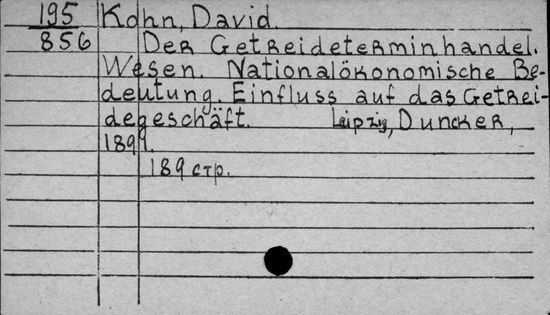 195 Kohn, David.
856 Der Getreideterminhandel.
Wesen. Nationalökonomische Be-
deutung. Einfluss auf das Getrei-
degeschäft. Leipzig, Duncker,
1899.
189 стр.